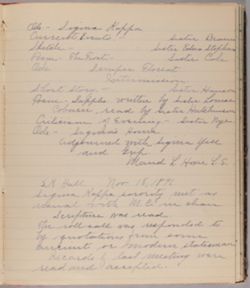 Ode - Sigma Kappa
Current Events - Sister Brown
Sketch - Sister Edna Stephens
Poem - The Poet - Sister Cole
Ode. Semper Floreat
Intermission
Short Story - Sister Hanson
Poem - Sappho written by Sister
read by Sister
Criticism of Evening - Sister
Ode - Sigma's
Adjourned with Sigma yell
and Grip
Maud L. Hoxie
S.K. Hall Nov. 18, 189
Sigma Kappa sorority met as
usual with M.E. in chair
Scripture was read.
The roll call was responded to
by quotations from some
ancient or modern statesman.
Records of last meeting were
read and accepted.